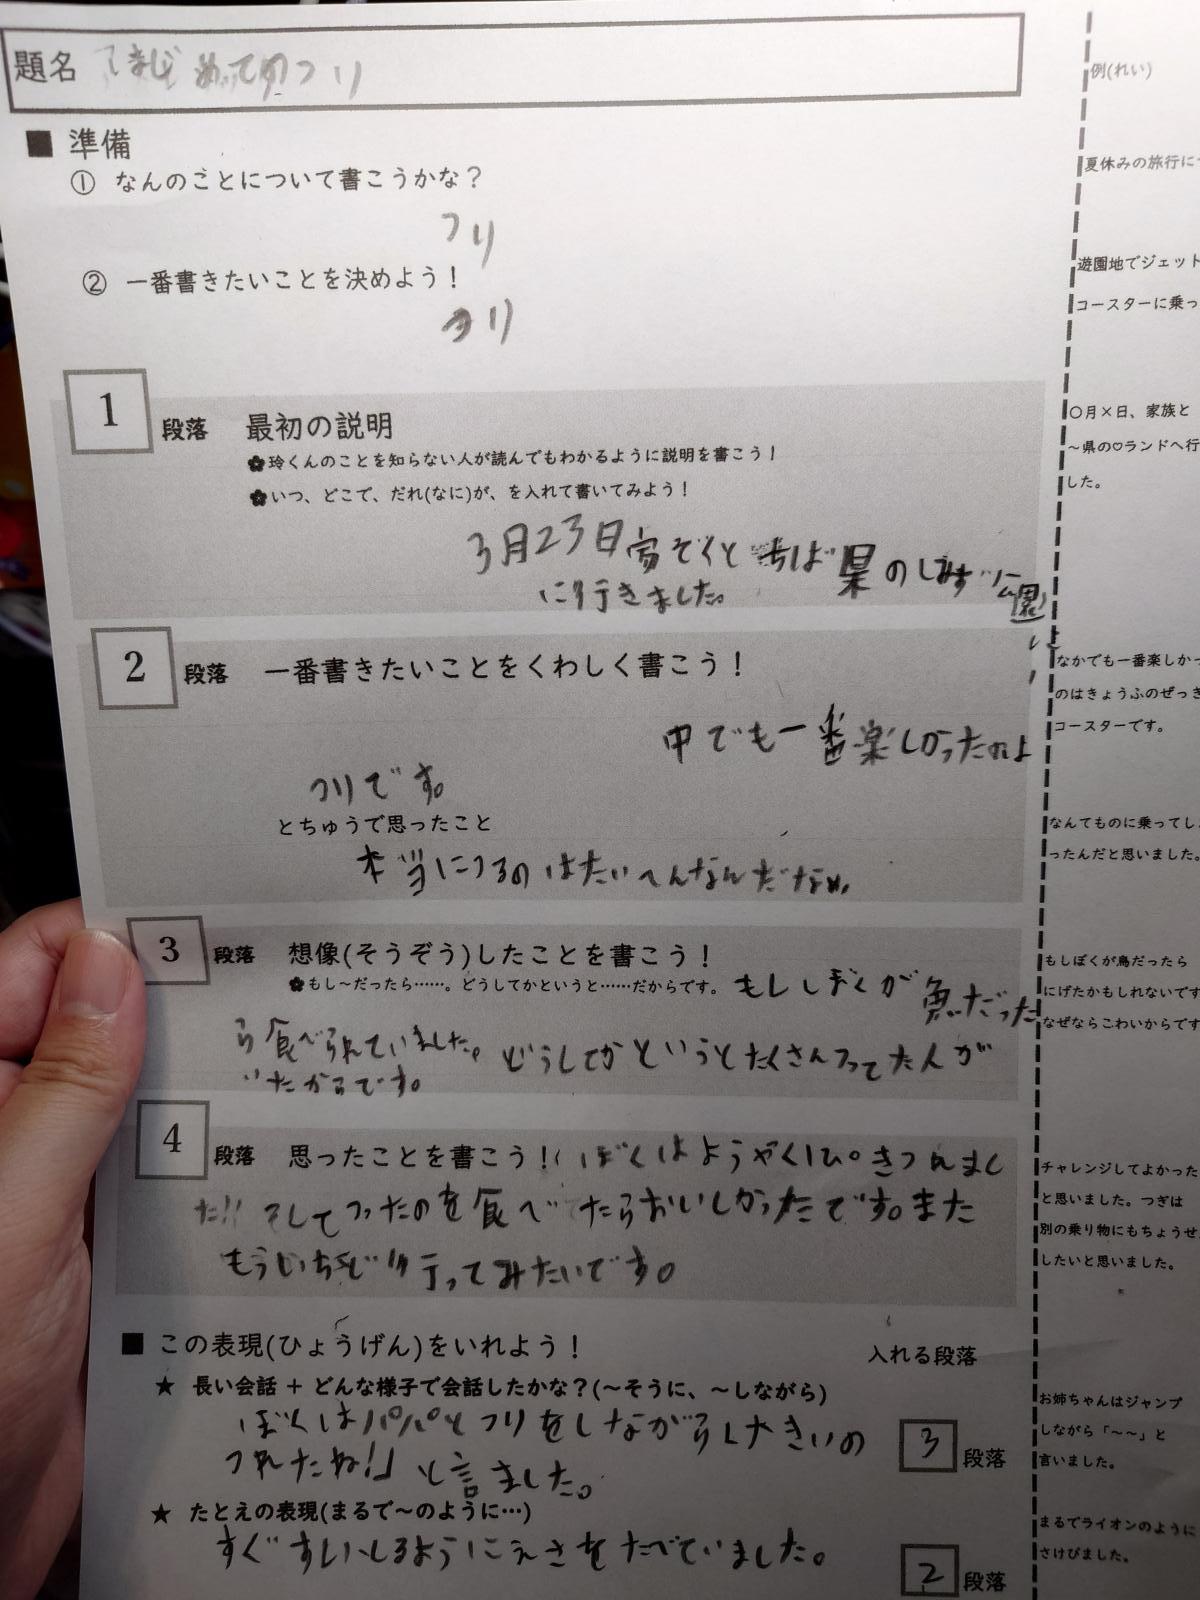 題名 はじめてのつり
■ 準備
① なんのことについて書こうかな？
つり
② 一番書きたいことを決めよう！
つり
1 段落 最初の説明
✿玲くんのことを知らない人が読んでもわかるように説明を書こう！
✿いつ、どこで、だれ(なに)が、を入れて書いてみよう！
3月23日家ぞくとちば県のしみず公園
に行きました。
2 段落 一番書きたいことをくわしく書こう！
中でも一番楽しかったのは
つりです。
とちゅうで思ったこと
本当につるのはたいへんなんだなぁ。
3 段落 想像(そうぞう)したことを書こう！
✿もし～だったら……。どうしてかというと……だからです。 もしぼくが魚だった
ら食べられていました。どうしてかというとたくさんつってた人が
いたからです。
4 段落 思ったことを書こう！ ぼくはようやく1ぴきつれまし
た!! そしてつったのを食べたらおいしかったです。また
もういちど行ってみたいです。
■ この表現(ひょうげん)をいれよう！ 入れる段落
★ 長い会話 + どんな様子で会話したかな？(～そうに、～しながら)
ぼくはパパとつりをしながら「大きいの
つれたね!」と言ました。 3 段落
★ たとえの表現(まるで～のように…)
ようにえさをたべていました。 2 段落
例(れい)
夏休みの旅行に
遊園地でジェット
コースターに乗っ
〇月×日、家族と
～県の♡ランドへ行
した。
なかでも一番楽しかっ
のはきょうふのぜっき
コースターです。
なんてものに乗ってし
ったんだと思いました。
もしぼくが鳥だったら
にげたかもしれないです
なぜならこわいからです
チャレンジしてよかった
と思いました。つぎは
別の乗り物にもちょうせ
したいと思いました。
お姉ちゃんはジャンプ
しながら「～～」と
言いました。
まるでライオンのように
さけびました。